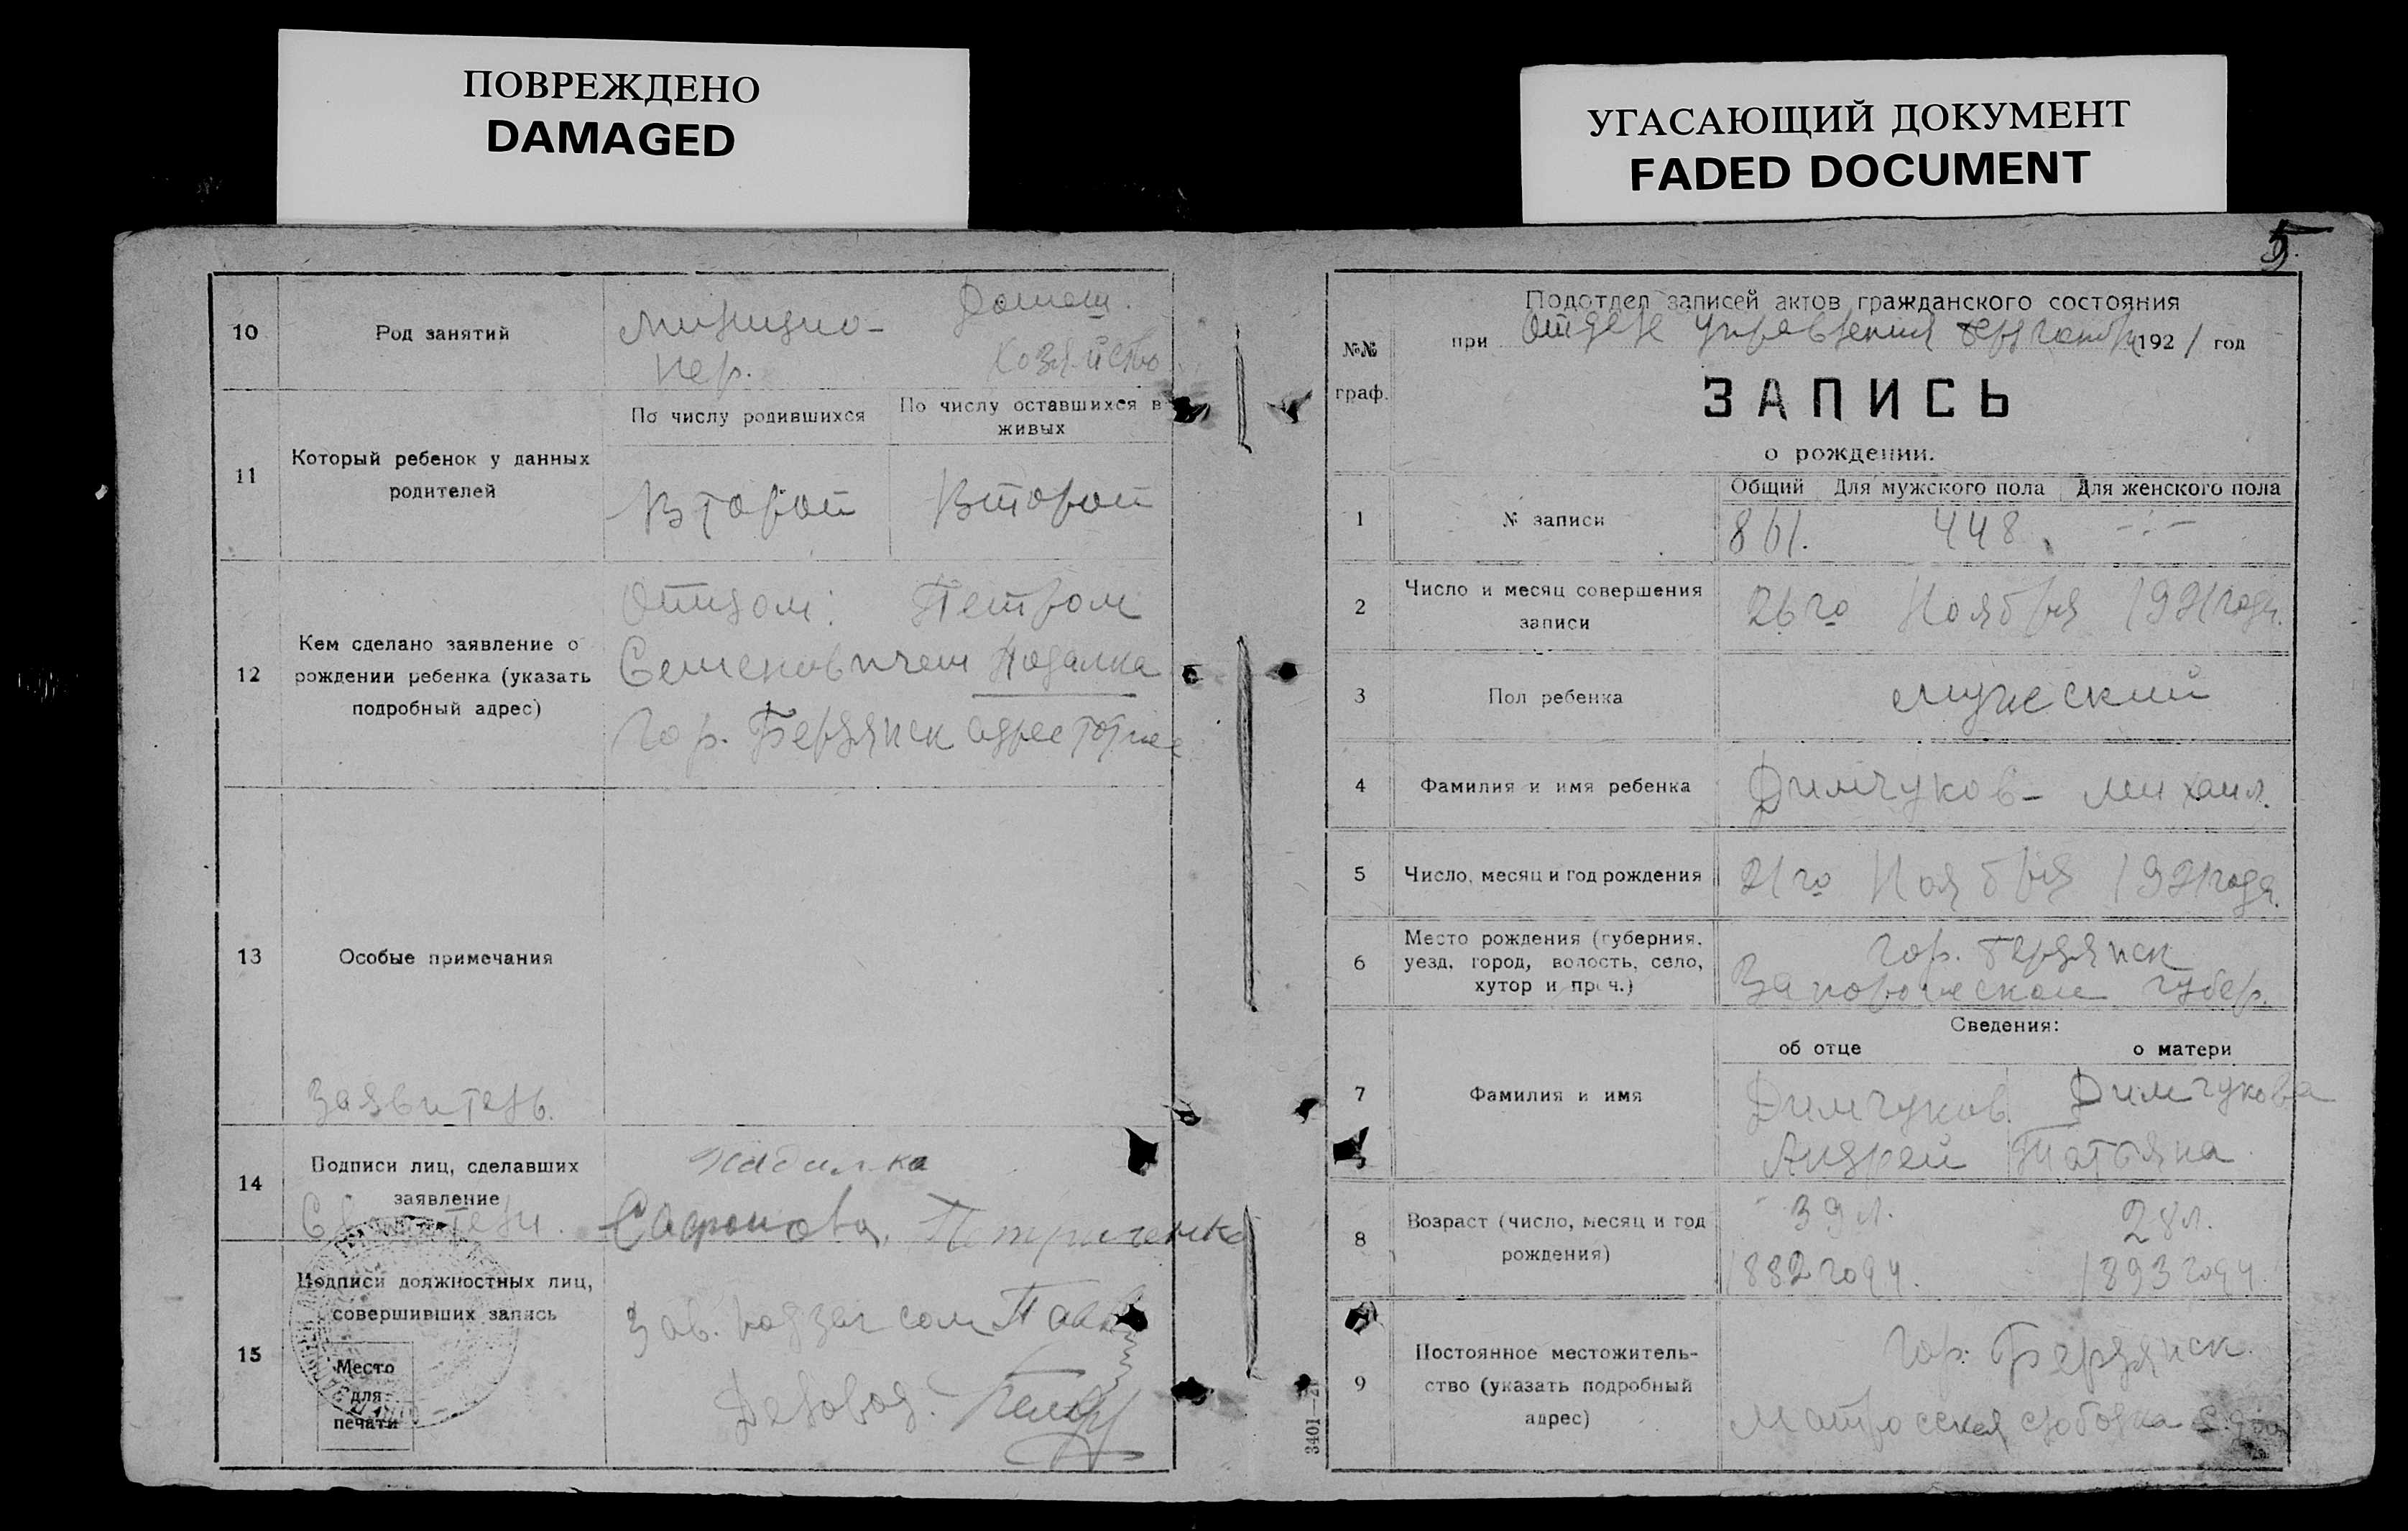 ПОВРЕЖДЕНО
DAMAGED
УГАСАЮЩИЙ ДОКУМЕНТ
FADED DOCUMENT
10
Род занятий
Милицио-
нер.
Домаш.
Хозяйство
11
Который ребенок у данных
родителей
По числу родившихся
По числу оставшихся в
живых
Второй
Второй
12
Кем сделано заявление о
рождении ребенка (указать
подробный адрес)
Отцом: Петром
Семеновичем
Гор. Бердянск адрес тот же
13
Особые примечания
Заявитель.
14
Подписи лиц, сделавших
заявление
Сафонова,
15
Подписи должностных лиц,
совершивших запись
Место
для
печати
Зав. подзагсом
Деловод.
5
№№
граф.
Подотдел записей актов гражданского состояния
при Отделе Управления 1921 год
ЗАПИСЬ
о рождении.
1
№ записи
Общий Для мужского пола Для женского пола
861. 448. -:-
2
Число и месяц совершения
записи
26го Ноября 1921 года.
3
Пол ребенка
мужеский
4
Фамилия и имя ребенка
Димчуков - Михаил.
5
Число, месяц и год рождения
21го Ноября 1921 года.
6
Место рождения (губерния,
уезд, город, волость, село,
хутор и проч.)
Гор. Бердянск
Запорожской губер.
Сведения:
об отце
о матери
7
Фамилия и имя
Димчуков
Андрей
Димчукова
Татьяна
8
Возраст (число, месяц и год
рождения)
39 л.
1882 году.
28 л.
1893 году.
9
Постоянное местожитель-
ство (указать подробный
адрес)
Гор. Бердянск.
Матросская слободка
3401—21